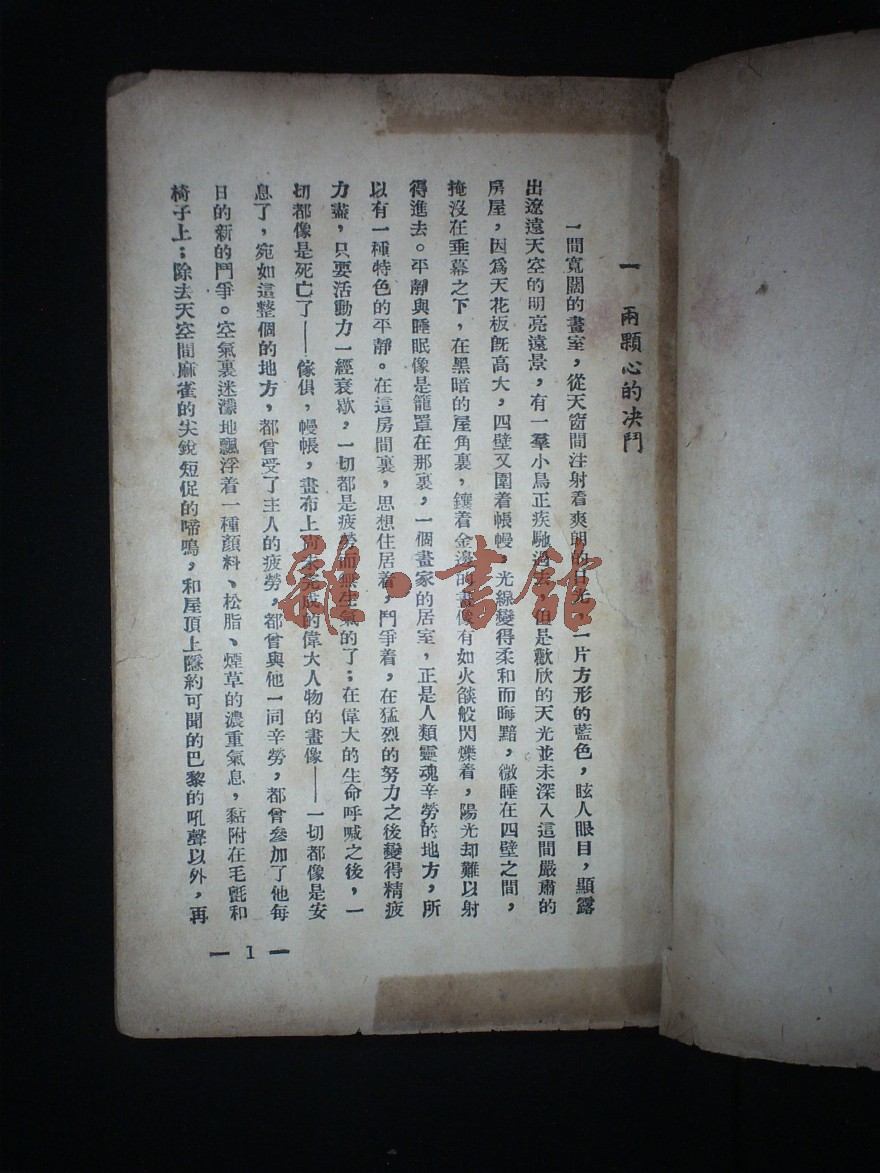 一　兩顆心的决鬥
一間寬闊的畫室，從天窗間注射着爽朗的日光，一片方形的藍色，眩人眼目，顯露
出遼遠天空的明亮遠景，有一羣小鳥正疾馳過去，但是歡欣的天光並未深入這間嚴肅的
房屋，因爲天花板旣高大，四壁又圍着帳幔，光線變得柔和而晦黯，微睡在四壁之間，
掩沒在垂幕之下，在黑暗的屋角裏，鑲着金邊的畫像有如火燄般閃爍着，陽光却難以射
得進去。平靜與睡眠像是籠罩在那裏，一個畫家的居室，正是人類靈魂辛勞的地方，所
以有一種特色的平靜。在這房間裏，思想住居着，鬥爭着，在猛烈的努力之後變得精疲
力盡，只要活動力一經衰歇，一切都是疲勞而無生氣的了；在偉大的生命呼喊之後，一
切都像是死亡了——傢俱，幔帳，畫布上尚未完成的偉大人物的畫像——一切都像是安
息了，宛如這整個的地方，都曾受了主人的疲勞，都曾與他一同辛勞，都曾參加了他每
日的新的鬥爭。空氣裏迷濛地飄浮着一種顏料、松脂、煙草的濃重氣息，黏附在毛氈和
椅子上；除去天空間麻雀的尖銳短促的啼鳴，和屋頂上隱約可聞的巴黎的吼聲以外，再
— 1 —
雜·書館